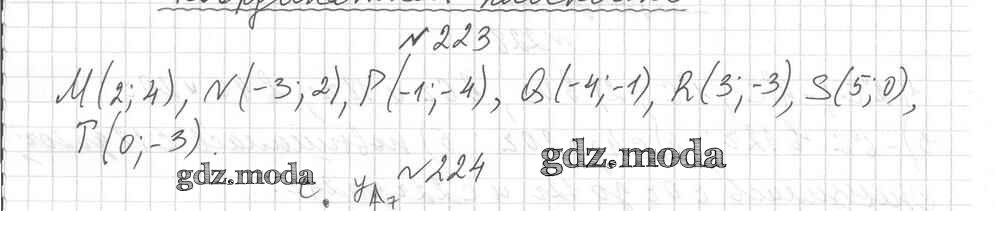 №223
M(2; 4), N(-3; 2), P(-1; -4), Q(-4; -1), R(3; -3), S(5; 0),
T(0; -3).
gdz.moda
gdz.moda
№224
C. y